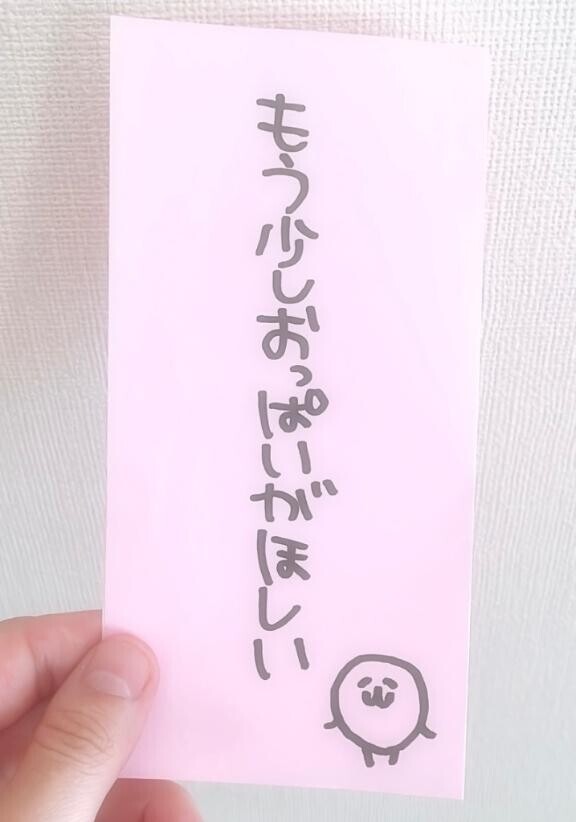 もう少しおっぱいがほしい